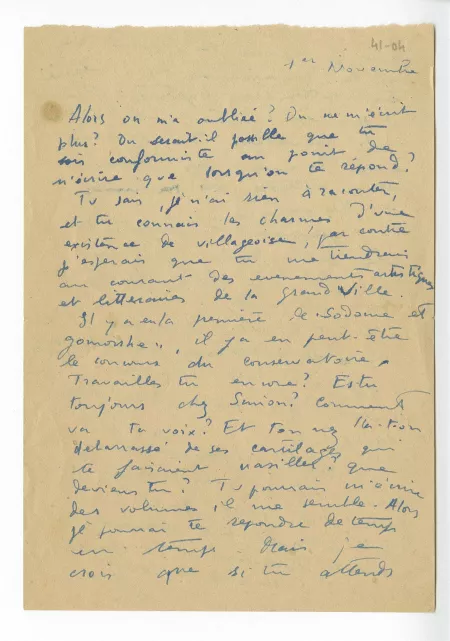 41-04
1er Novembre
Alors on m'a oubliée? On ne m'écrit
plus? Ou serait-il possible que tu
sois conformiste au point de
n'écrire que lorsqu'on te répond?
Tu sais, je n'ai rien à raconter,
et tu connais les charmes d'une
existence de villageoise! par contre
j'esperais que tu me tiendrais
au courant des evenements artistiques
et litteraires de la Grand Ville.
Il y a eu la première de "Sodome et
gomorrhe", il y a eu peut-être
le concours du conservatoire.
Travailles tu encore? Es tu
toujours chez Simon? Comment
va ta voix? Et ton nez l'a-t-on
debarrassé de ses cartilages qui
te faisaient nasiller? que
deviens tu? Tu pourrais m'écrire
des volumes, il me semble. Alors
je pourrai te repondre de temps
en temps. Mais je
crois que si tu attends